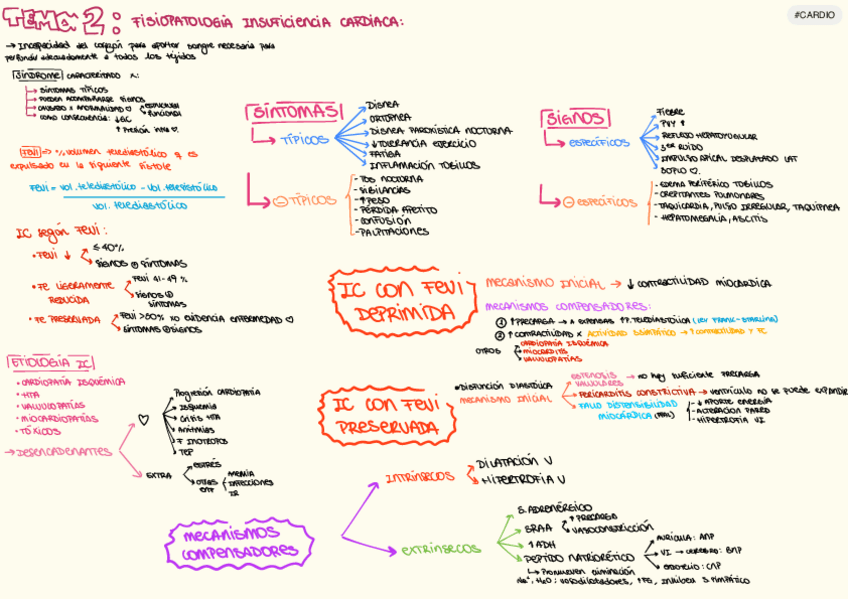 #CARDIO
TEMA 2: FISIOPATOLOGÍA INSUFICIENCIA CARDÍACA:
→ Incapacidad del corazón para aportar sangre necesaria para
perfundir adecuadamente a todos los tejidos
SÍNDROME CARACTERIZADO X:
SÍNTOMAS TÍPICOS
PUEDEN ACOMPAÑARSE SIGNOS
CAUSADO X ANORMALIDAD ♡ ESTRUCTURA
FUNCIONAL
COMO CONSECUENCIA: ↓GC
↑ PRESIÓN INTRA ♡
FEVI → % volumen telediastólico q es
expulsado en la siguiente sístole
FEVI = vol. telediastólico - vol. telesistólico
vol. telediastólico
IC según FEVI:
• FEVI ↓
≤ 40%
SIGNOS ⊕ SÍNTOMAS
• FE LIGERAMENTE
REDUCIDA
FEVI 41-49 %
SIGNOS ⊕
SÍNTOMAS
• FE PRESERVADA
FEVI >50% XO EVIDENCIA ENFERMEDAD ♡
SÍNTOMAS ⊕ SIGNOS
ETIOLOGÍA IC
• CARDIOPATÍA ISQUÉMICA
• HTA
• VALVULOPATÍAS
• MIOCARDIOPATÍAS
• TÓXICOS
→ DESENCADENANTES
♡
Progresión CARDIOPATÍA
ISQUEMIA
CRISIS HTA
Arritmias
F INOTRÓPOS
TEP
EXTRA
ESTRÉS
OTRAS
ENF
ANEMIA
INFECCIONES
IR
SÍNTOMAS
TÍPICOS
DISNEA
ORTOPNEA
DISNEA PAROXÍSTICA NOCTURNA
↓ TOLERANCIA EJERCICIO
FATIGA
INFLAMACIÓN TOBILLOS
⊖ TÍPICOS
- TOS NOCTURNA
- SIBILANCIAS
- ↑ PESO
- PÉRDIDA APETITO
- CONFUSIÓN
- PALPITACIONES
SIGNOS
ESPECÍFICOS
FIEBRE
PVY ↑
REFLUJO HEPATOYUGULAR
3er RUIDO
IMPULSO APICAL DESPLAZADO LAT
SOPLO ♡.
⊖ ESPECÍFICOS
- EDEMA PERIFÉRICO TOBILLOS
- CREPITANTES PULMONARES
- TAQUICARDIA, PULSO IRREGULAR, TAQUIPNEA
- HEPATOMEGALIA, ASCITIS
IC CON FEVI
DEPRIMIDA
MECANISMO INICIAL → ↓ CONTRACTILIDAD MIOCÁRDICA
MECANISMOS COMPENSADORES:
① ↑ PRECARGA → A EXPENSAS ↑P. TELEDIASTÓLICA (LEY FRANK-STARLING)
② ↑ CONTRACTILIDAD X ACTIVIDAD SIMPÁTICO → ↑ CONTRACTILIDAD Y FC
OTROS
CARDIOPATÍA ISQUÉMICA
MIOCARDITIS
VALVULOPATÍAS
IC CON FEVI
PRESERVADA
• DISFUNCIÓN DIASTÓLICA
MECANISMO INICIAL
ESTENOSIS
VALVULARES
→ no hay suficiente PRECARGA
PERICARDITIS CONSTRICTIVA → ventrículo no se puede expandir
FALLO DISTENSIBILIDAD
MIOCÁRDICA
- ↓ APORTE ENERGÍA
- ALTERACIÓN PARED
- HIPERTROFIA VI
MECANISMOS
COMPENSADORES
INTRÍNSECOS
DILATACIÓN V
HIPERTROFIA V
EXTRÍNSECOS
S. ADRENÉRGICO
SRAA
↑ PRECARGA
VASOCONSTRICCIÓN
↑ ADH
PÉPTIDO NATRIURÉTICO
AURÍCULA: ANP
VI → CEREBRO: BNP
ENDOTELIO: CNP
↳ Promueven eliminación
Na⁺, H₂O: vasodilatadores, ↑FG, INHIBEN S. SIMPÁTICO